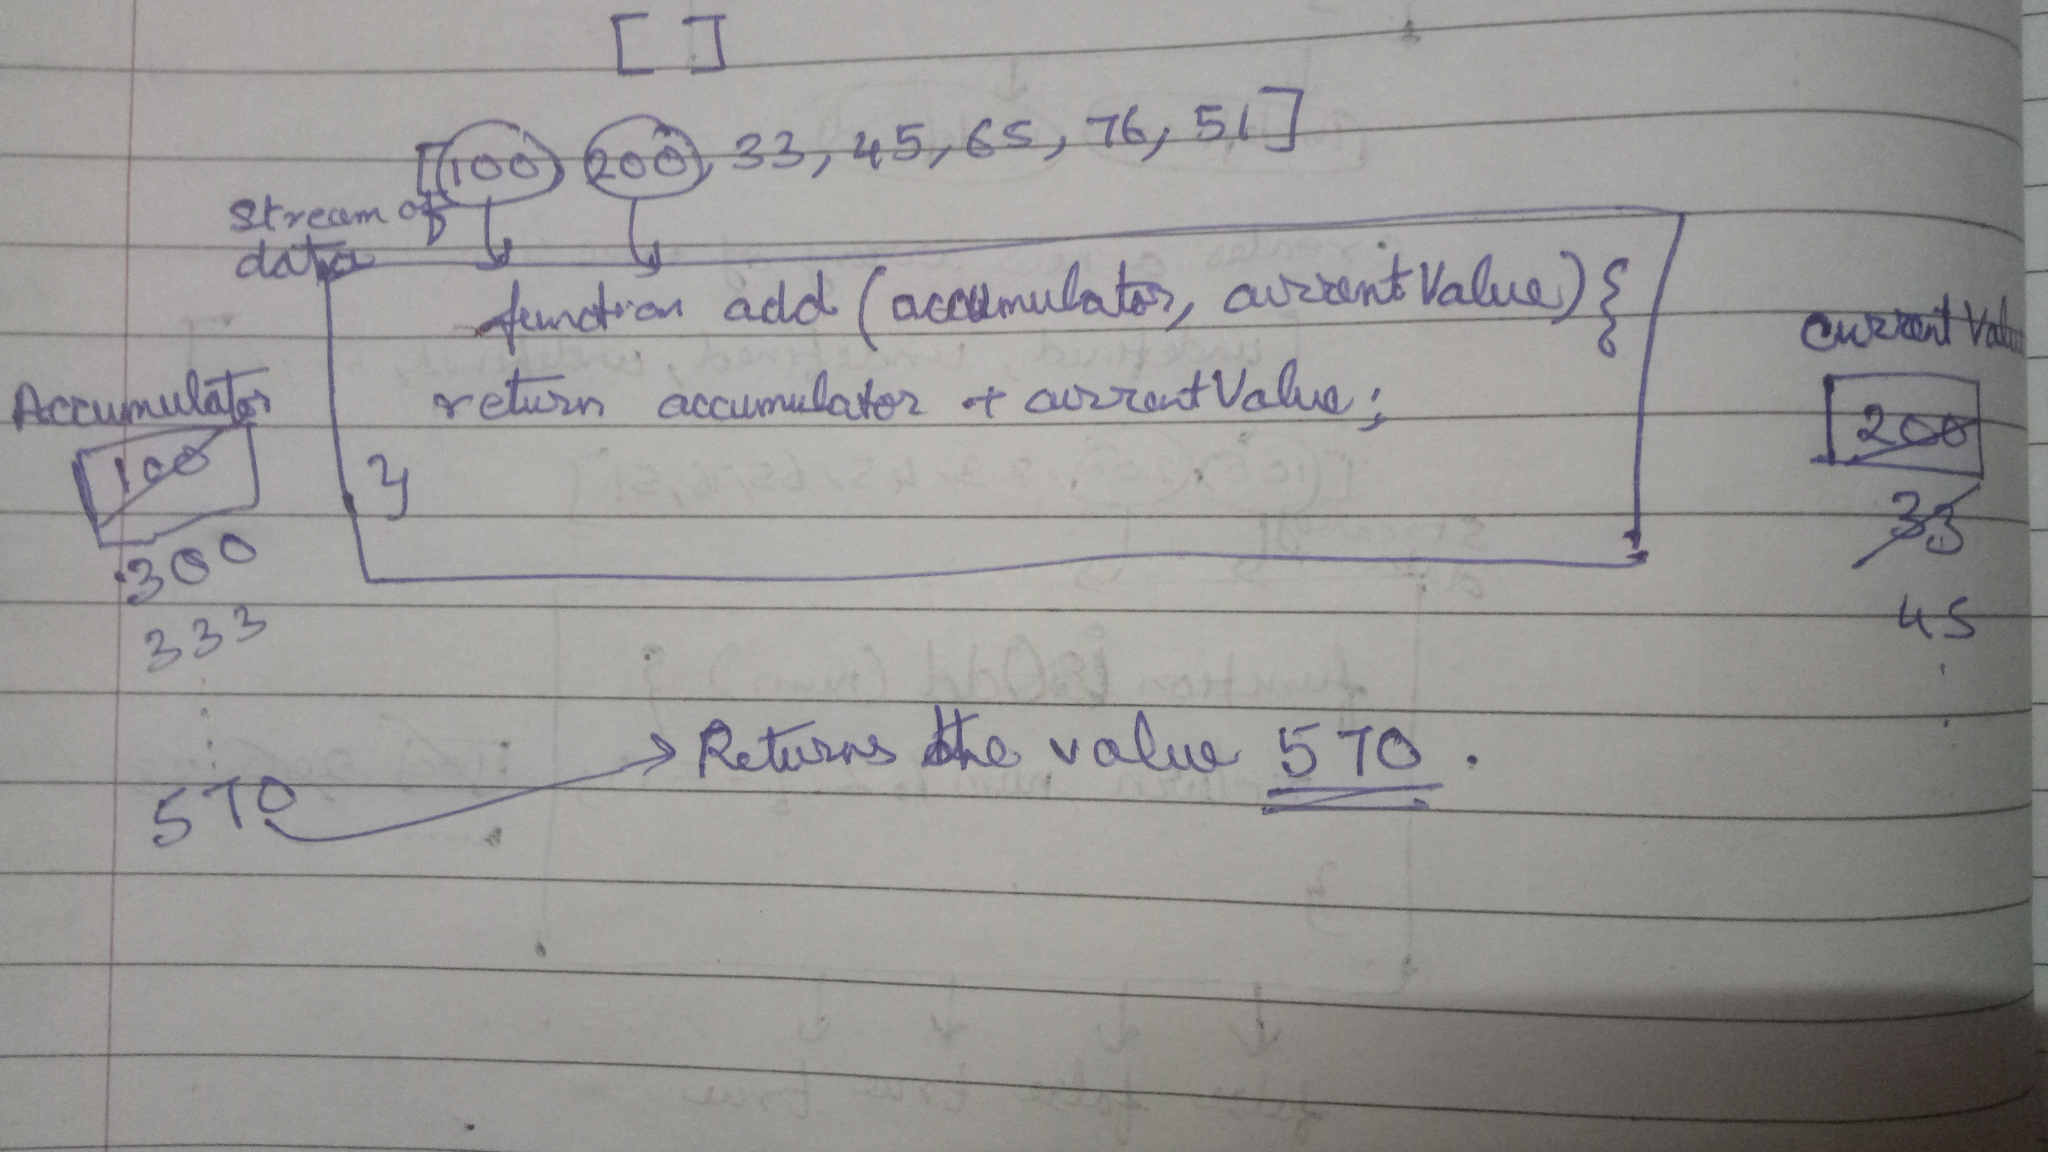 [ ]
[100 200, 33, 45, 65, 76, 51]
Stream of
data
function add (accumulator, currentValue) {
return accumulator + currentValue;
}
Accumulator
100
300
333
570
Current Value
200
33
45
Returns the value 570.